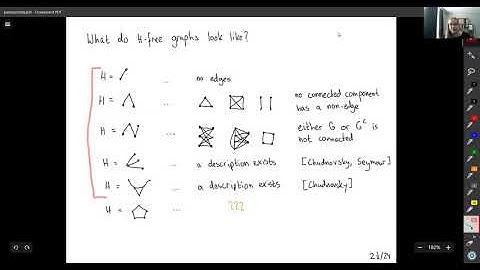 What do H-free graphs look like?
H = ... no edges
H = ... no connected component has a non-edge
H = ... either G or Gᶜ is not connected
H = ... a description exists [Chudnovsky, Seymour]
H = ... a description exists [Chudnovsky]
H = ... ???
100%